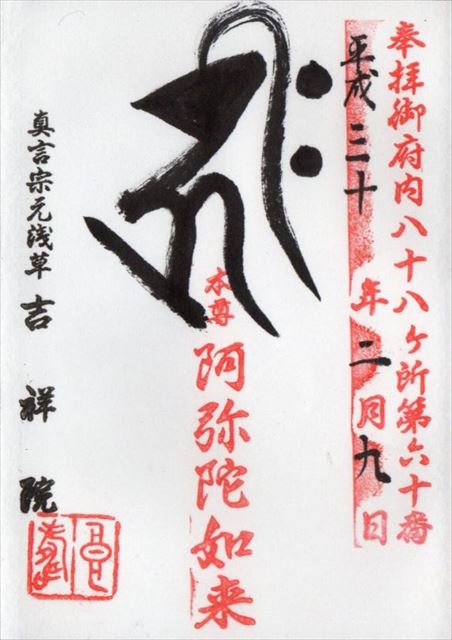 奉拝御府内八十八ケ所第六十番
平成三十年二月九日
𑖮𑖿𑖨𑖱𑖾
本尊
阿弥陀如来
真言宗元浅草吉祥院